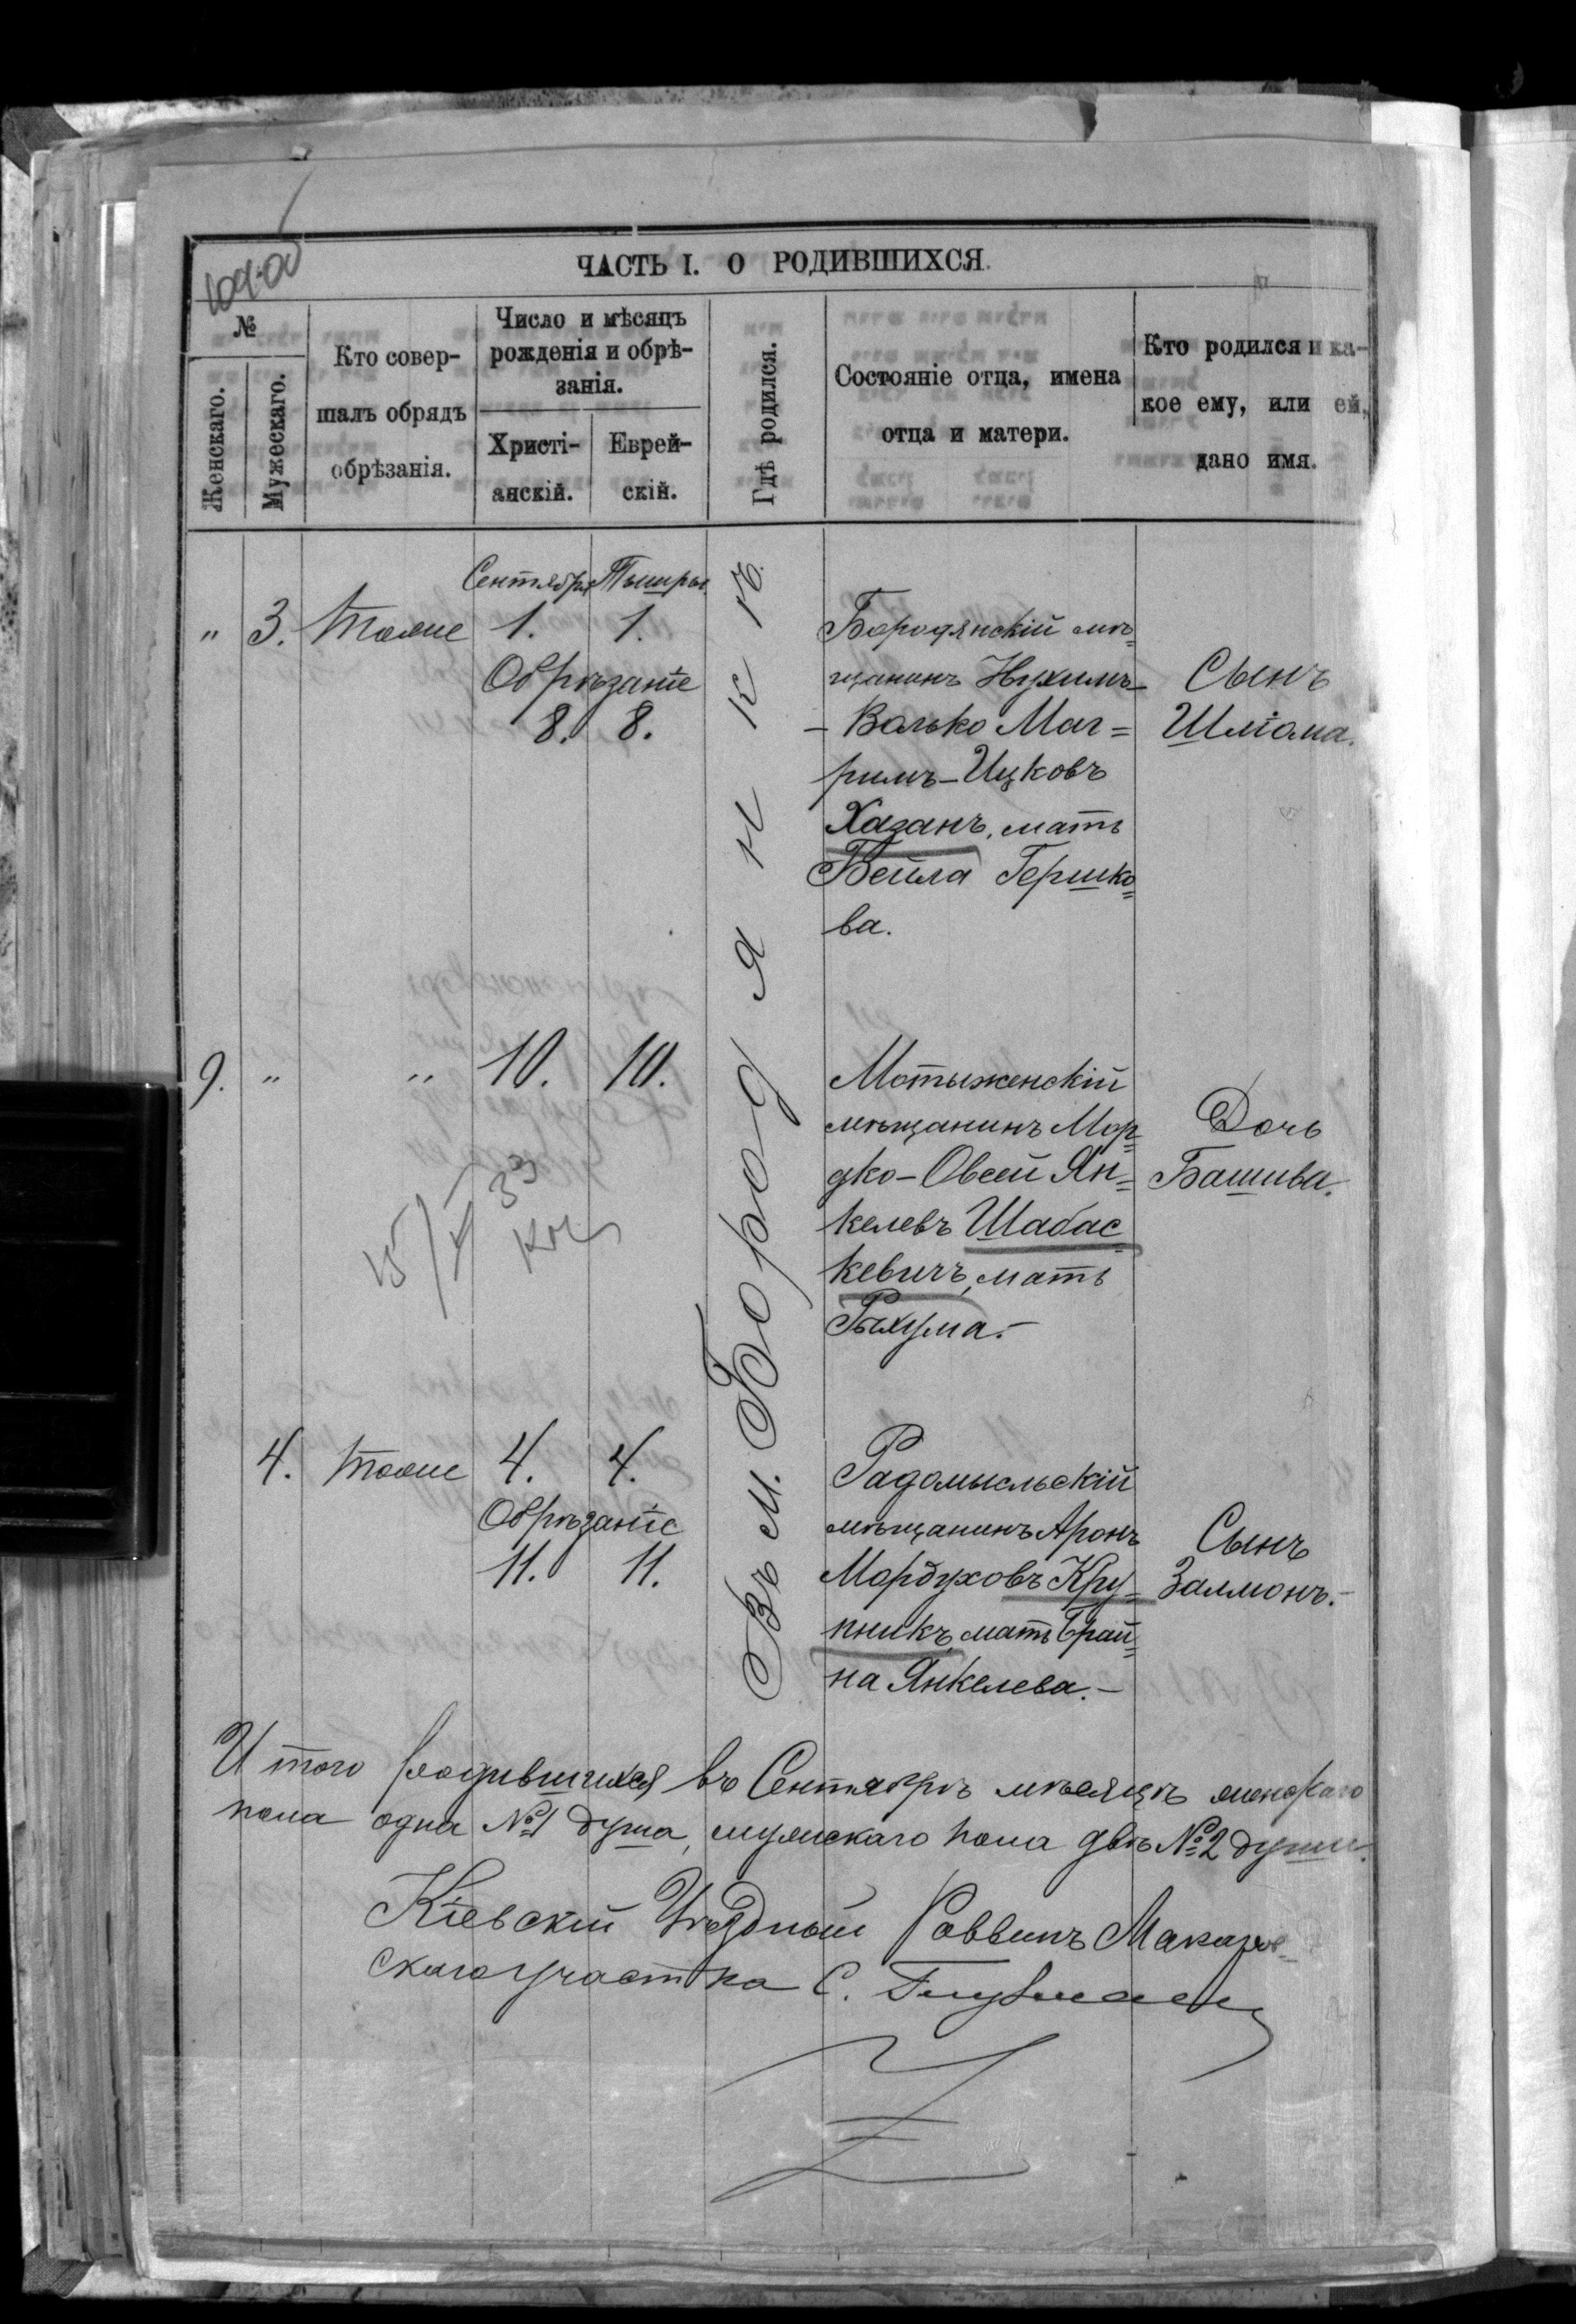 109об
ЧАСТЬ I. О РОДИВШИХСЯ.
№
Женскаго.
Мужескаго.
Кто совер-
шалъ обрядъ
обрѣзанія.
Число и мѣсяцъ
рожденія и обрѣ-
занія.
Христі-
анскій.
Еврей-
скій.
Гдѣ родился.
Состояніе отца, имена
отца и матери.
Кто родился и ка-
кое ему, или ей,
дано имя.
Въ м. Бородянкѣ
Сентября Тышры
" 3. Тоже 1. 1.
Обрѣзаніе
8. 8.
Бородянскій мѣ=
щанинъ Нухимъ-
- Волько Маг=
римъ-Ицковъ
Хазанъ, мать
Бейла Гершко=
ва.
Сынъ
Шліома.
9. " " 10. 10.
Мотыженскій
мѣщанинъ Мор=
дко-Овсей Ян=
келевъ Шабас=
кевичъ, мать
Рыхума.-
Дочь
Башива.
15/X 33
4. Тоже 4. 4.
Обрѣзаніе
11. 11.
Радомысльскій
мѣщанинъ Аронъ
Мордуховъ Кру=
пникъ, мать Брай=
на Янкелева.-
Сынъ
Залмонъ.-
Итого родившихся въ Сентябрѣ мѣсяцѣ женскаго
пола одна №1 душа, мужскаго пола двѣ №2 души.
Кіевскій Уѣздный Раввинъ Макаров=
скаго участка С.